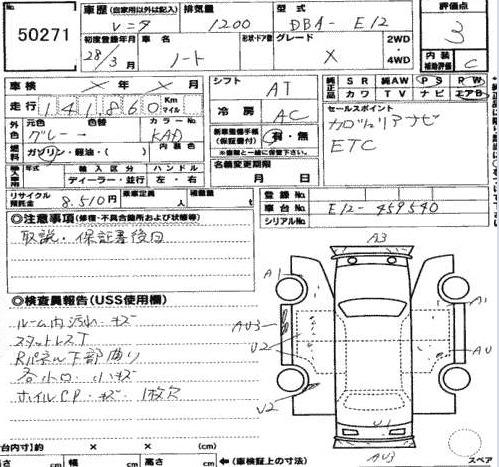 50271
車歴 (自家用以外は記入) レンタ
排気量 1200
型式 DBA-E12
評価点 3
初度登録年月 28年 3月
車名 ノート
形状・ドア数
グレード X
2WD
4WD
内装補助評価 C
車検 × 年 × 月
走行 141860 Km マイル
シフト AT
冷房 AC
純正品 SR 純AW PS PW
カワ TV ナビ エアB
外色 元色 グレー 色替
カラーNo. KAD
燃料 ガソリン・軽油・( )
内装色
新車整備手帳 (保証書付) 有・無
※複製と一緒に保管下さい。
セールスポイント
カロッツェリアナビ
ETC
年式 輸入区分 ハンドル
ディーラー・並行 左・右
名義変更期限 月 日
リサイクル預託金 8,510円
乗車定員 人
積載量 t
登録No.
車台No. E12-459540
シリアルNo.
◎注意事項 (修復・不具合箇所および状態等)
取説・保証書後日
◎検査員報告 (USS使用欄)
ルーム内汚れ・キズ
スタットレスT
Rパネル下部曲り
各小凹・小キズ
ホイルCP・キズ 1枚欠
A3
A1
A1
AU3
U2
AU
U2
U1
AU3
スペア
荷台内寸) 約 × × (cm)
cm 幅 cm 高さ cm ← (車検証上の寸法)